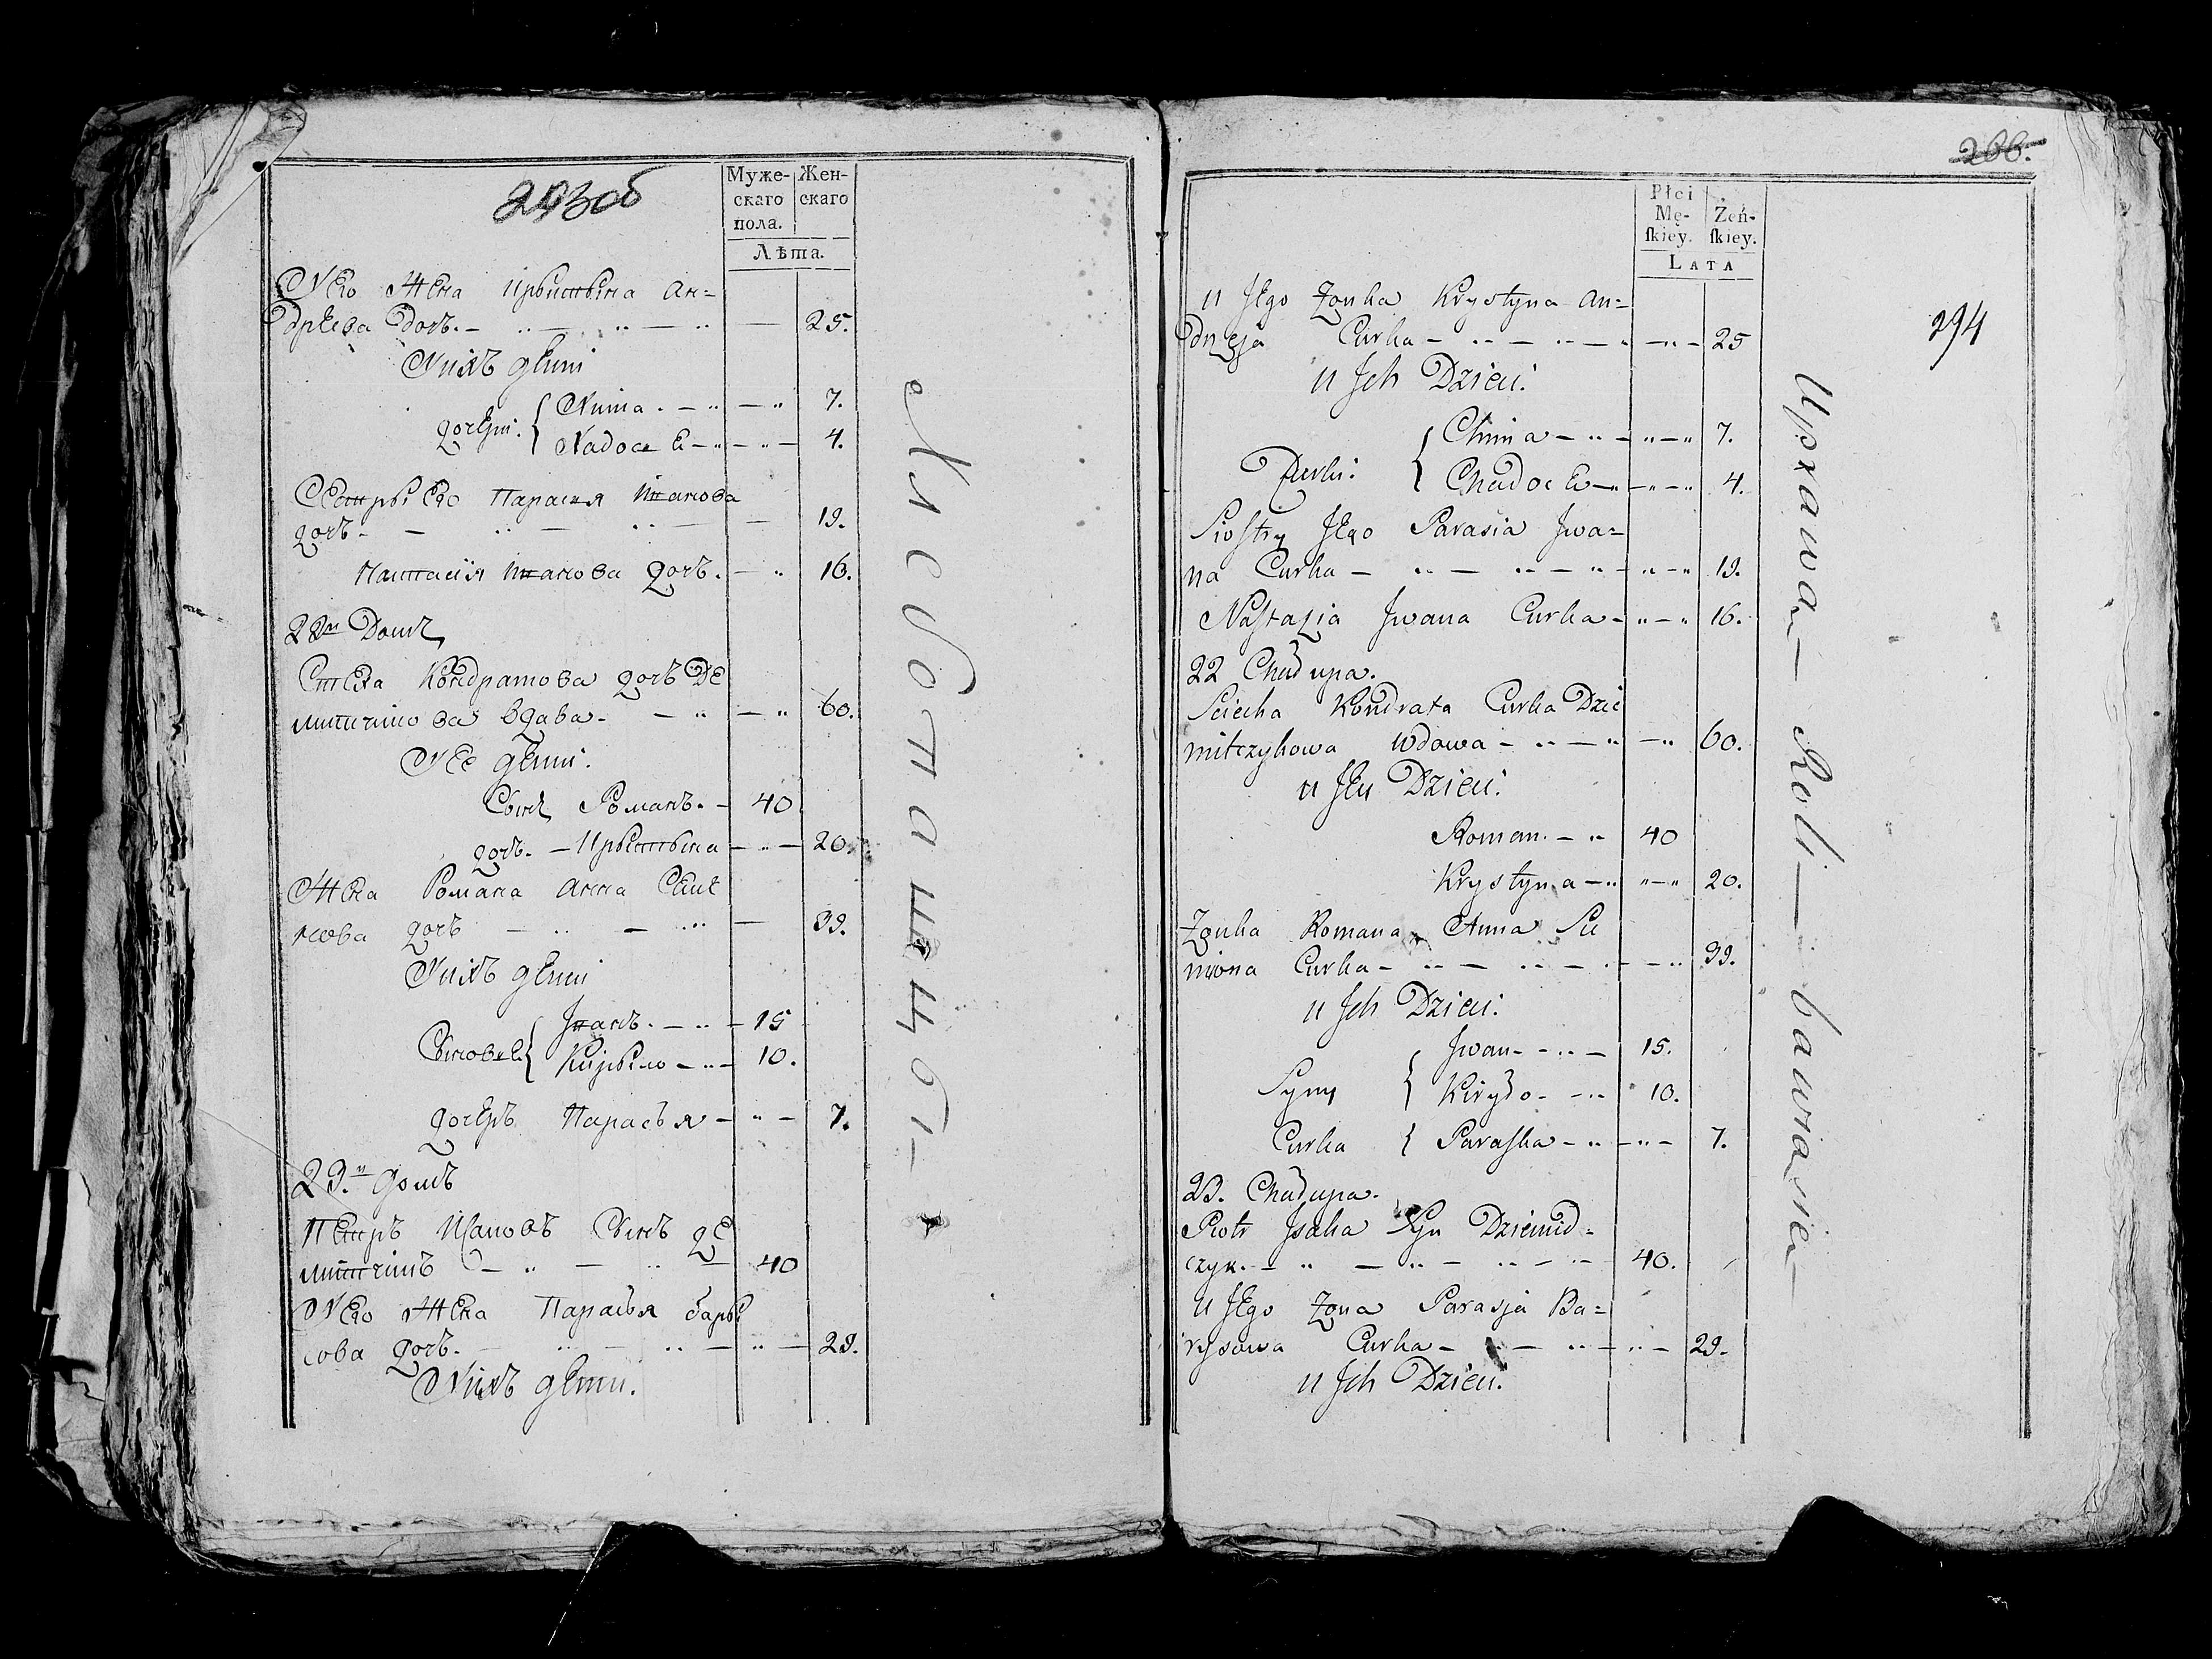 293об
Муже-
скаго
пола.
Жен-
скаго
Лѣта.
Его Жена Крыстына Ан=
дрэева дочь. 25.
Ихъ дѣти
дочери. { Хима. 7.
Хадося 4.
Сестры Его Парасия Иванова
дочь 19.
Настасія Иванова дочь. 16.
22й Домъ
Стеха Кондратова дочь Де
митчикова вдава 60.
Ее дѣти.
Сынъ Романъ. 40
дочь. Крыстына 20.
Жена Романа Анна Семе
нова дочь 39.
Ихъ дѣти
Сыновья { Иванъ. 15
Кирыло 10.
дочерь Парасья 7.
23.й домъ
Петръ Исаковъ Сынъ де
митчикъ 40
Его Жена Парасья бары
сова дочь. 29.
Ихъ дѣти.
266.
Płci
Mę-
ſkiey.
Żeń-
ſkiey.
LATA
294
u Jego Żonka Krystyna An=
drzeja Curka 25
u Jch Dzieci.
Curki. { Chima 7.
Chadosia 4.
Siostry Jego Parasia Jwa=
na Curka 19.
Nastazia Jwana Curka 16.
22 Chałupa.
Sciecha Kondrata Curka Dzie
mitczykowa Wdowa 60.
u Jey Dzieci.
Roman. 40
Krystyna 20.
Żonka Romana Anna Sie
miona Curka 39.
u Jch Dzieci.
Syny { Jwan 15.
Kiryło 10.
Curka { Paraska 7.
23. Chałupa.
Piotr Jsaka Syn Dziemid-
czyk. 40.
u Jego Żona Parasja Ba=
rysowa Curka 29.
u Jch Dzieci.
Uprawa Roli bawiasie